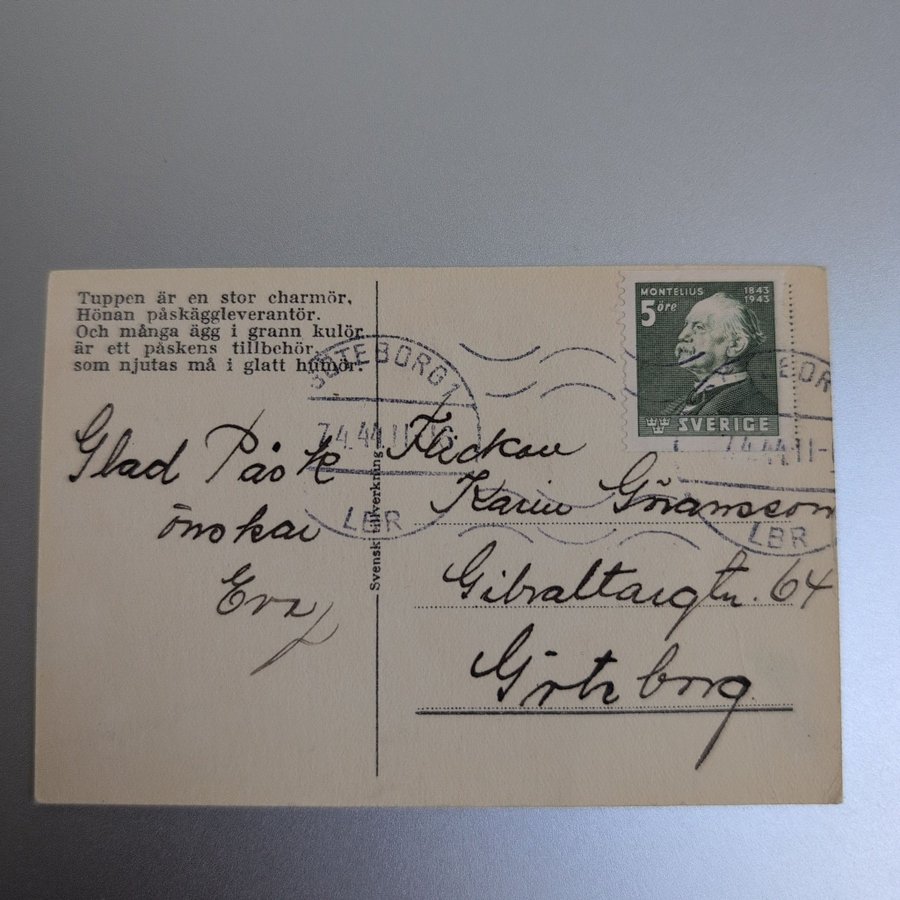 Tuppen är en stor charmör,
Hönan påskäggleverantör.
Och många ägg i grann kulör
är ett påskens tillbehör
som njutas må i glatt humör.
Glad Påsk
önskar
Eva
Svensk tillverkning
MONTELIUS 1843 1943
5 öre
SVERIGE
GÖTEBORG 1
7.4.44.11-
LBR
EBOR
7.4.44.11-
LBR
Flickan
Karin Göransson
Gibraltargtn. 64
Göteborg